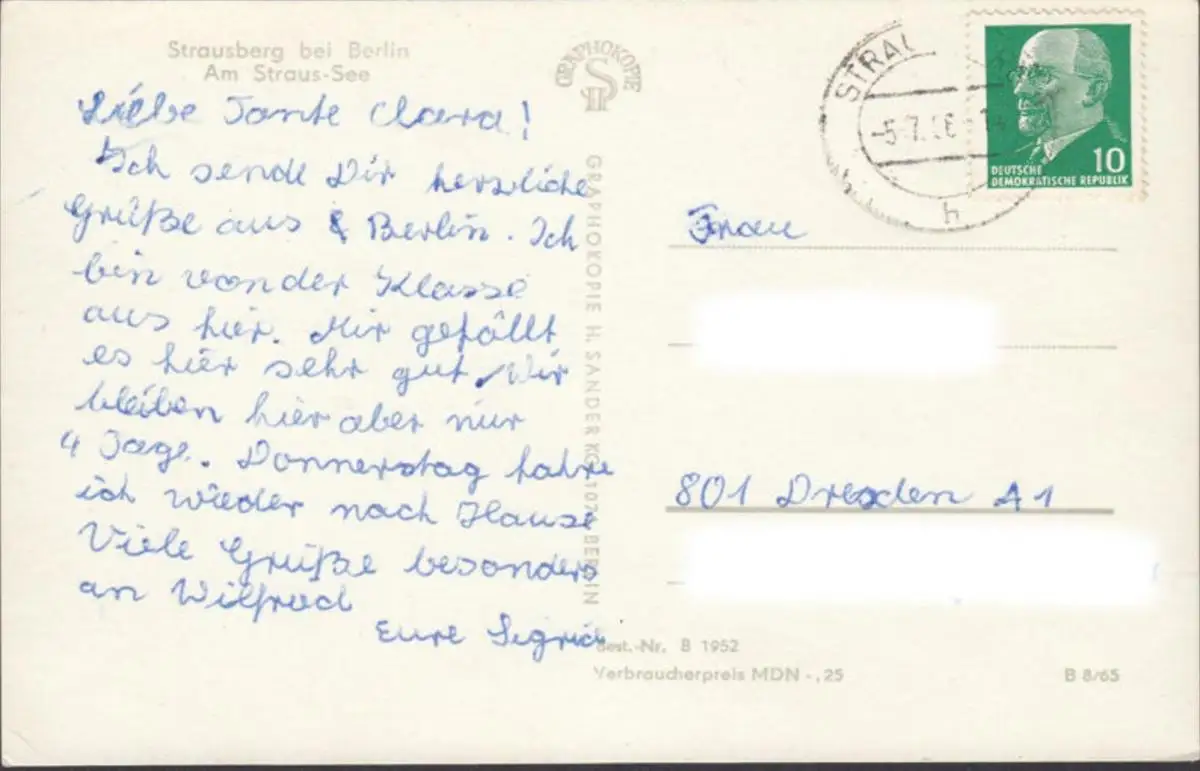 Strausberg bei Berlin
Am Straus-See
Liebe Tante Clara!
Ich sende Dir herzliche
Grüße aus Berlin. Ich
bin von der Klasse
aus hier. Mir gefällt
es hier sehr gut. Wir
bleiben hier aber nur
4 Tage. Donnerstag fahre
ich wieder nach Hause
Viele Grüße besonders
an Wilfried
Eure Sigrid
GRAPHOKOPIE
GRAPHOKOPIE H. SANDER KG 107 BERLIN
STRAL
-5.7.
h
10
DEUTSCHE
DEMOKRATISCHE REPUBLIK
Frau
801 Dresden A1
Best.-Nr. B 1952
Verbraucherpreis MDN -,25
B 8/65